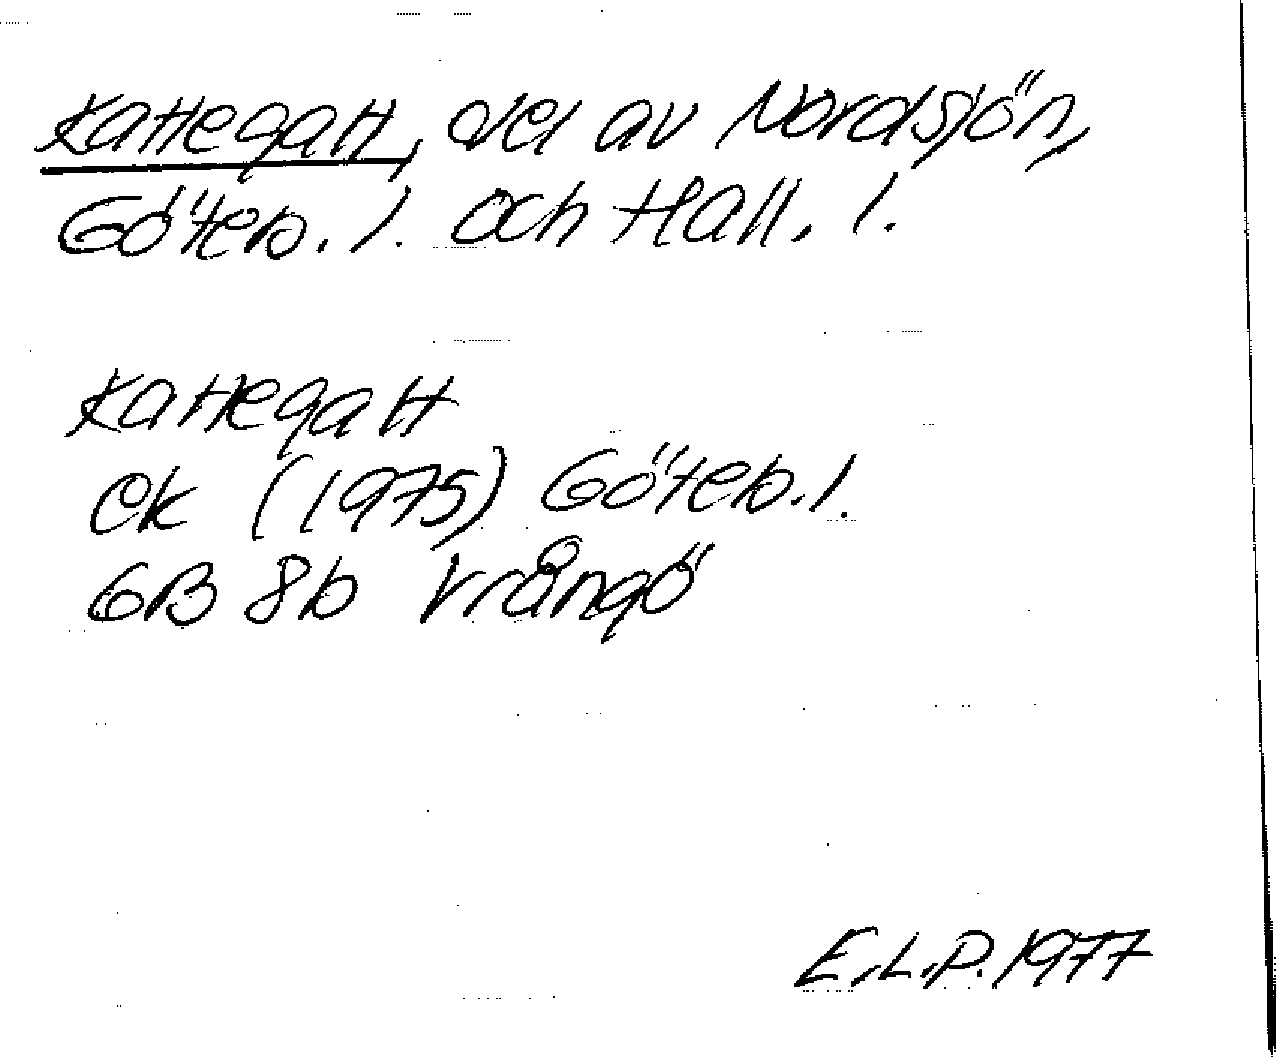 Kattegatt, del av Nordsjön,
Göteb. l. och Hall. l.
Kattegatt
ek (1975) Göteb. l.
6B 8b Vrångö
E.L.P. 1977